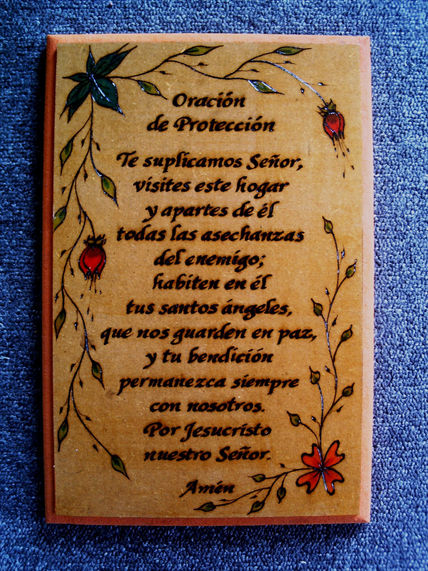 Oración
de Protección
Te suplicamos Señor,
visites este hogar
y apartes de él
todas las asechanzas
del enemigo;
habiten en él
tus santos ángeles,
que nos guarden en paz,
y tu bendición
permanezca siempre
con nosotros.
Por Jesucristo
nuestro Señor.
Amén